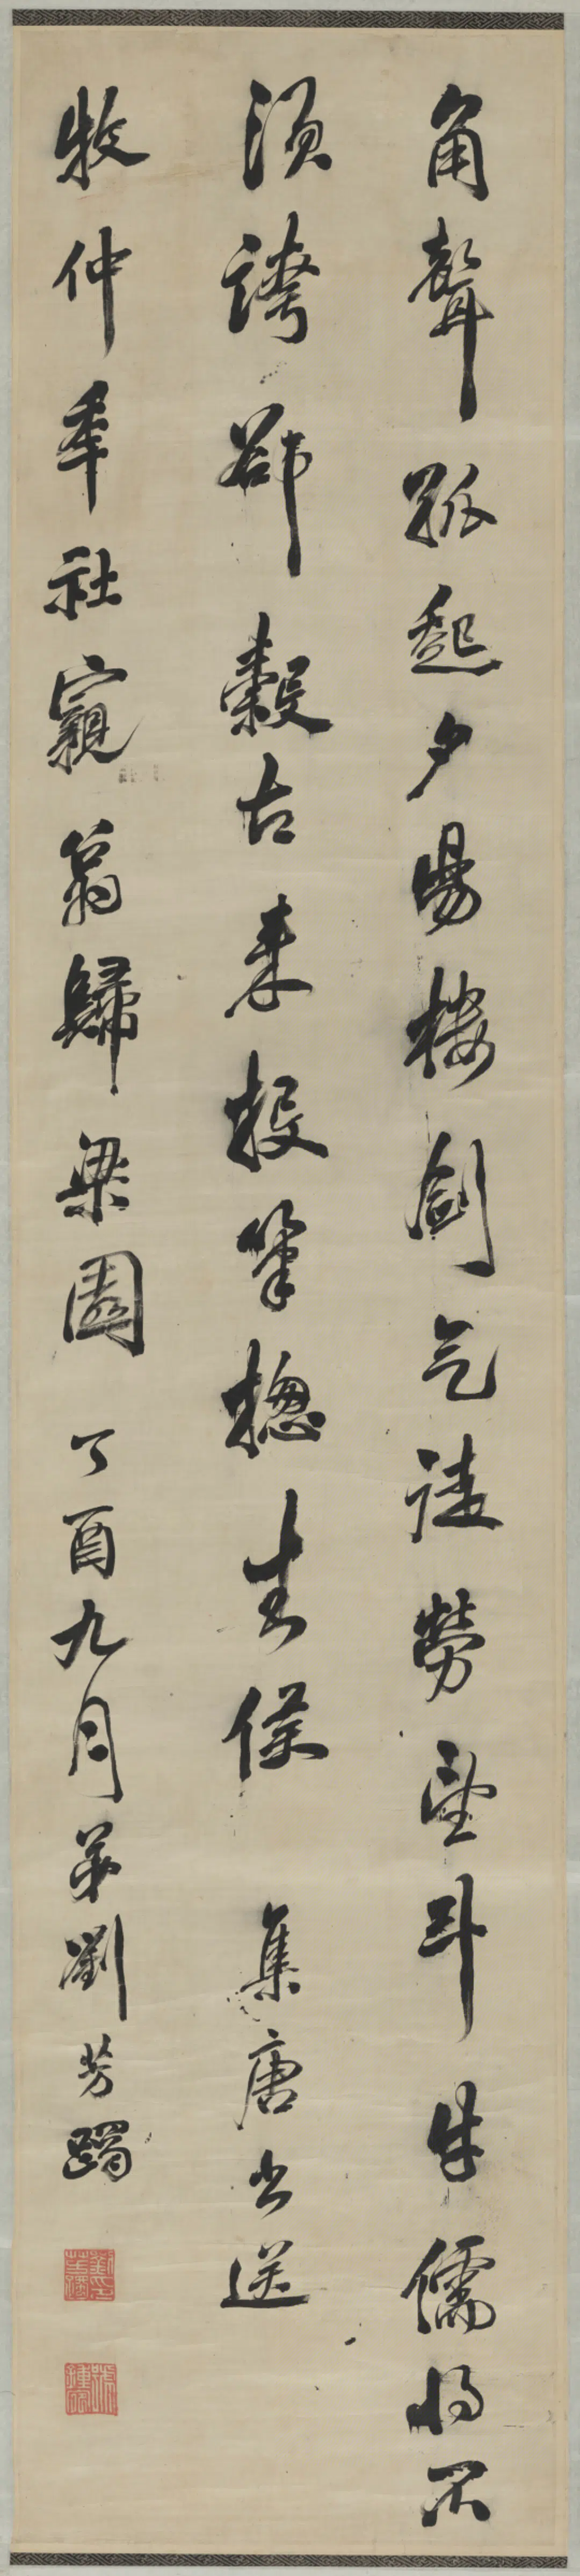 角聲孤起夕陽樓劍气徒勞望斗牛儒將不
須誇郤縠古来投筆摠 集唐書送
牧仲年社親翁歸梁園 丁酉九月弟劉芳躅